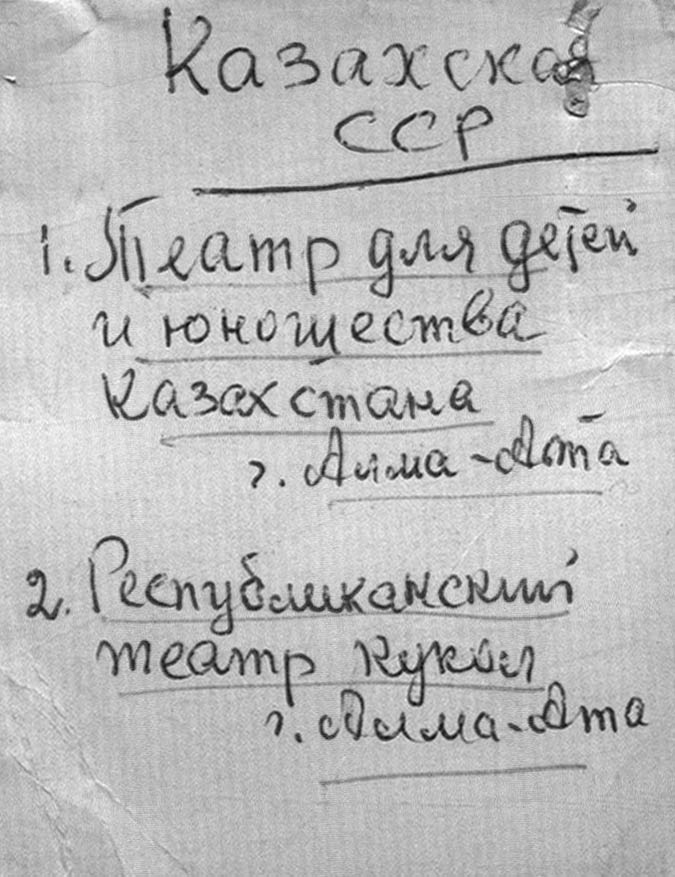 Казахская
ССР
1. Театр для детей
и юношества
Казахстана
г. Алма-Ата
2. Республиканский
театр кукол
г. Алма-Ата